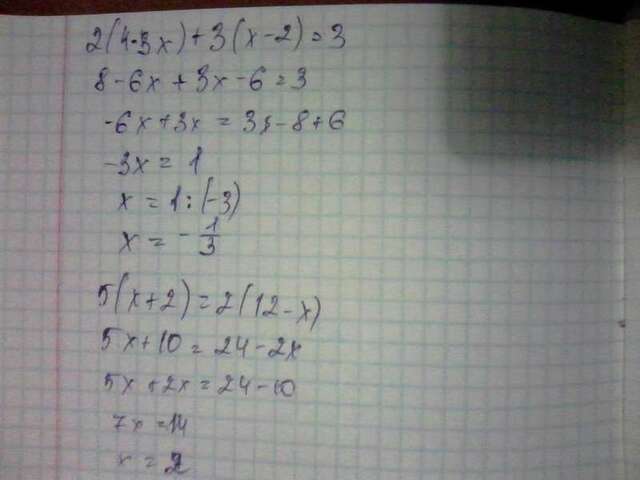 2(4-3x)+3(x-2)=3
8-6x+3x-6=3
-6x+3x=3-8+6
-3x=1
x=1:(-3)
x=-1/3
5(x+2)=2(12-x)
5x+10=24-2x
5x+2x=24-10
7x=14
x=2